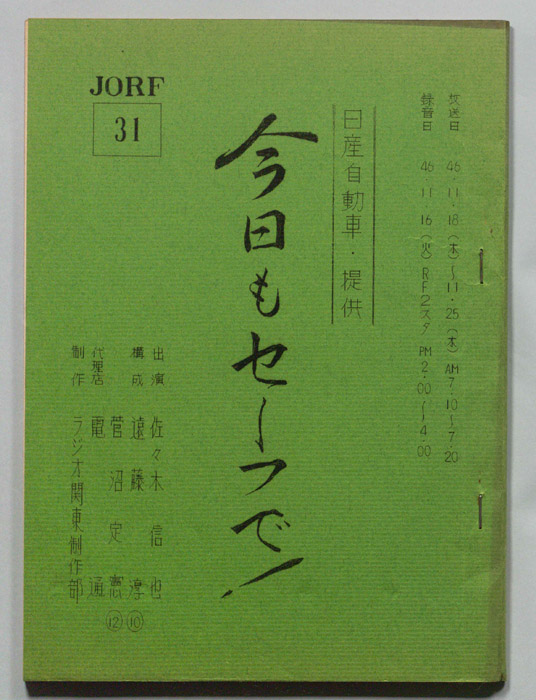 放送日 46 11・18(木)〜11・25(木) AM7・10〜7・20
録音日 46 11 16(火) RF2スタ PM2・00〜4・00
日産自動車・提供
今日もセーフで!
JORF
31
出演 佐々木信也
構成 遠藤淳⑩
菅沼定憲⑫
代理店 電通
制作 ラジオ関東制作部